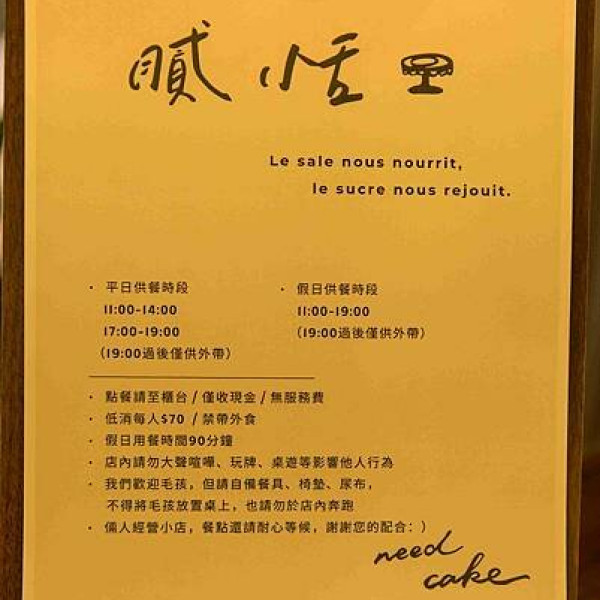 膩 小恬
Le sale nous nourrit,
le sucre nous rejouit.
· 平日供餐時段
11:00-14:00
17:00-19:00
（19:00過後僅供外帶）
· 假日供餐時段
11:00-19:00
（19:00過後僅供外帶）
· 點餐請至櫃台 / 僅收現金 / 無服務費
· 低消每人$70 / 禁帶外食
· 假日用餐時間90分鐘
· 店內請勿大聲喧嘩、玩牌、桌遊等影響他人行為
· 我們歡迎毛孩，但請自備餐具、椅墊、尿布，
不得將毛孩放置桌上，也請勿於店內奔跑
· 倆人經營小店，餐點還請耐心等候，謝謝您的配合：）
need
cake